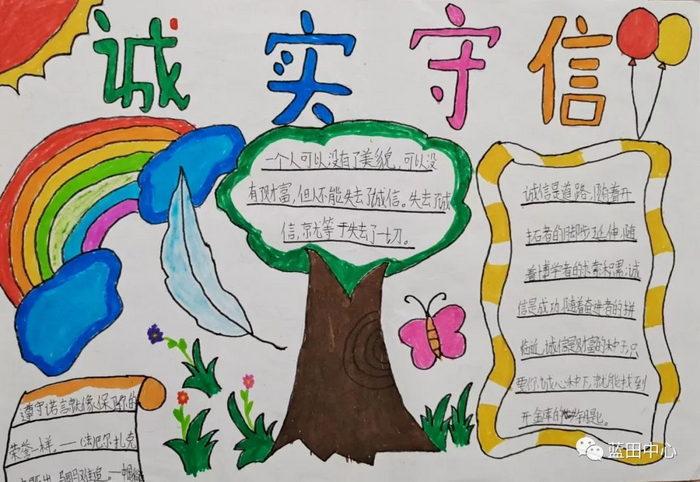 诚实守信
一个人可以没有了美貌，可以没
有了财富，但不能失去了诚信。失去了诚
信，就等于失去了一切。
诚信是道路，随着开
拓者的脚步延伸，随
着博学者的求索积累，诚
信是成功，随着奋进者的拼
临近，诚信是财富的种子，只
要你诚心种下，就能找到
开金库的钥匙。
遵守诺言就像保卫你的
荣誉一样，——（法）巴尔扎克
蓝田中心